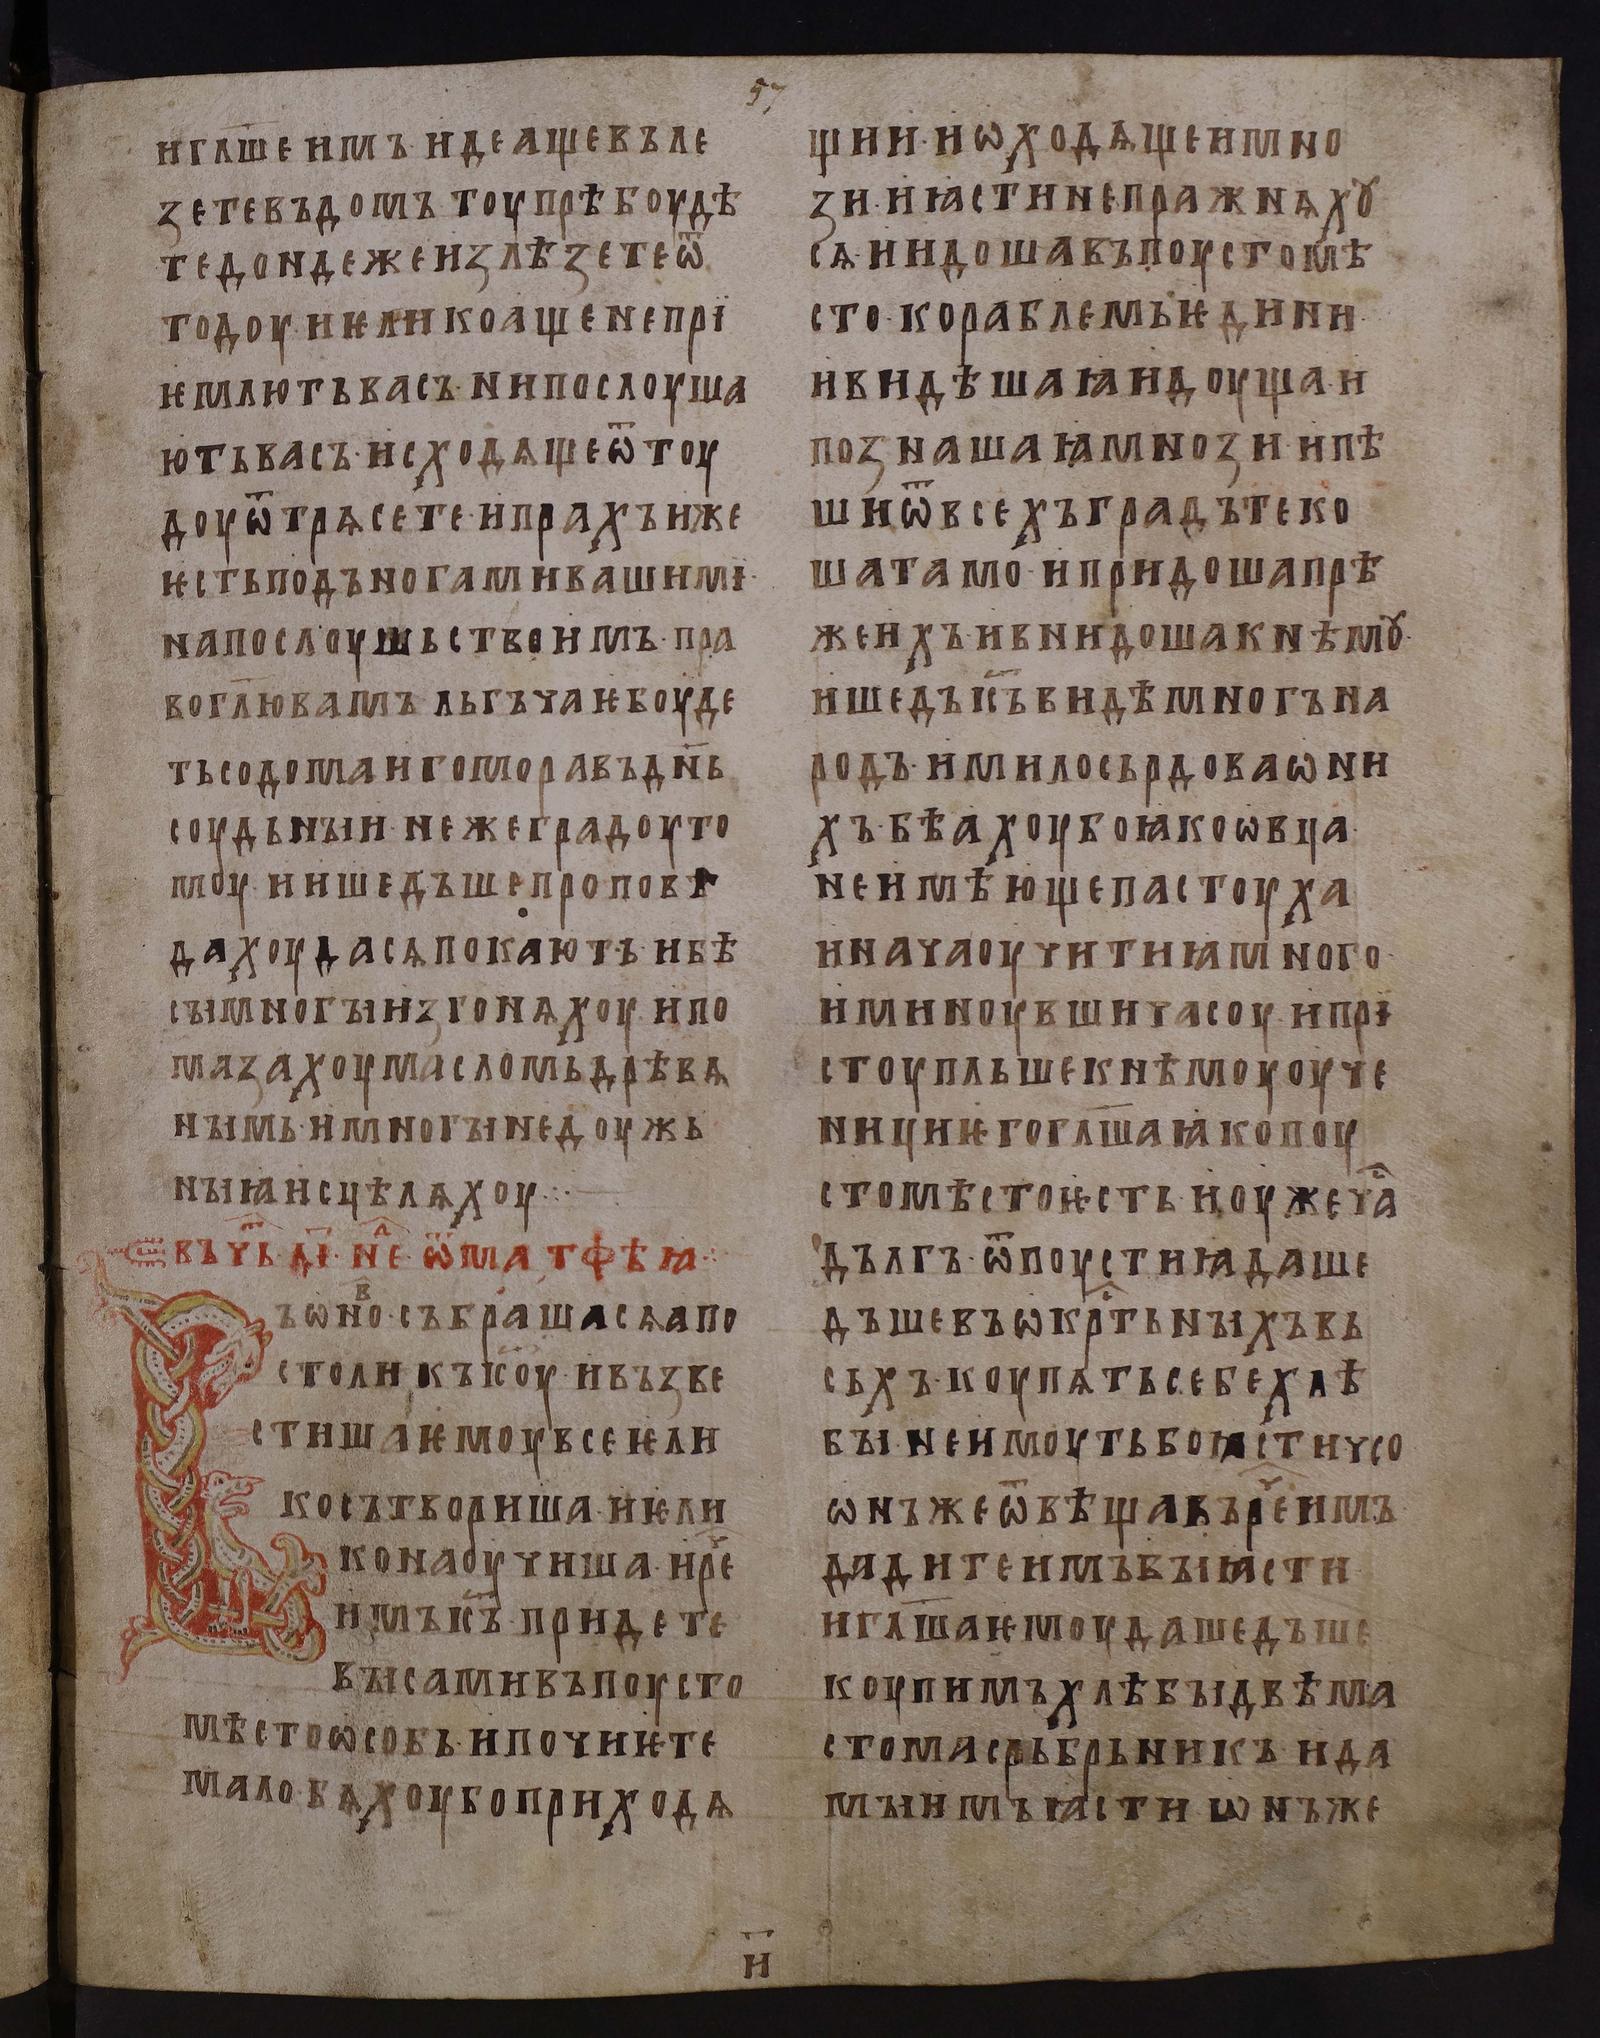 57
и гл҃ше имъ · идеаще въле
зете въ домъ тоу прѣбоудѣ
те дондеже изълѣзете ѿ
тодоу · и ѥлико аще не прі
ѥмлють васъ · ни послоуша
ють васъ · исходѧще ѿтоу
доу ѿтрѧсете и прахъ иже
ѥсть подъ ногами вашимі ·
на послоушьство имъ · пра
во гл҃ю вамъ льгъчаѥ боуде
ть содома и гомора въ дн҃ь
соудьныи · неже градоу то
моу · и ишедъше проповѣ
дахоу да сѧ покають · и бѣ
сы многы изгонѧхоу · и по
мазахоу масломь дрѣвѧ
нымь · и многы недоужь
ныꙗ исцѣлѧхоу ·:·
Є въ чт҃ь · д҃і · нлⷣе ѿ матфѣꙗ ·:·
Въ ѡно в · събрашасѧ апо
столи къ іс҃оу · и възве
стиша ѥмоу все ѥли
ко сътвориша · и ѥли
ко наоучиша · и рчⷭе
имъ іс҃ъ придѣте
вы сами въ поусто
мѣсто ѡсобь · и почиѥте
мало бѧхоу бо приходѧ
щии · и ѡходѧщеи мно
зи · и ꙗсти не пражнѧхꙋ
сѧ · и идоша въ поусто мѣ
сто · кораблемь ѥдини
и видѣша ꙗ идоуща · и
познаша ꙗ мнози · и пѣ
ши ѿ всехъ градъ теко
ша тамо · и придоша прѣ
же ихъ · и внидоша к нѣмꙋ ·
ишедъ іс҃ъ видѣ многъ на
родъ · и милосьрдова ѡ ни
хъ · бѣахоу бо ꙗко ѡвца ·
не имѣюще пастоуха
и нача оучити ꙗ много ·
и миноувши часоу · и прі
стоупльше к нѣмоу оуче
ници ѥго гл҃ша ꙗко поу
сто мѣсто ѥсть · и оуже чаⷭ
дългъ · ѿпоусти ꙗ да ше
дъше въ ѡкрⷭтьныхъ вь
сьхъ · коупѧть себе хлѣ
бы · не имоуть бо ꙗсти чсо
ѡнъ же ѿвѣщавъ рчⷭе имъ ·
дадите имъ вы ꙗсти ·
и гл҃ша ѥмоу да шедъше
коупимъ хлѣбы двѣма
стома срьбрьникъ · и да
мы имъ ꙗсти ѡнъ же
н҃